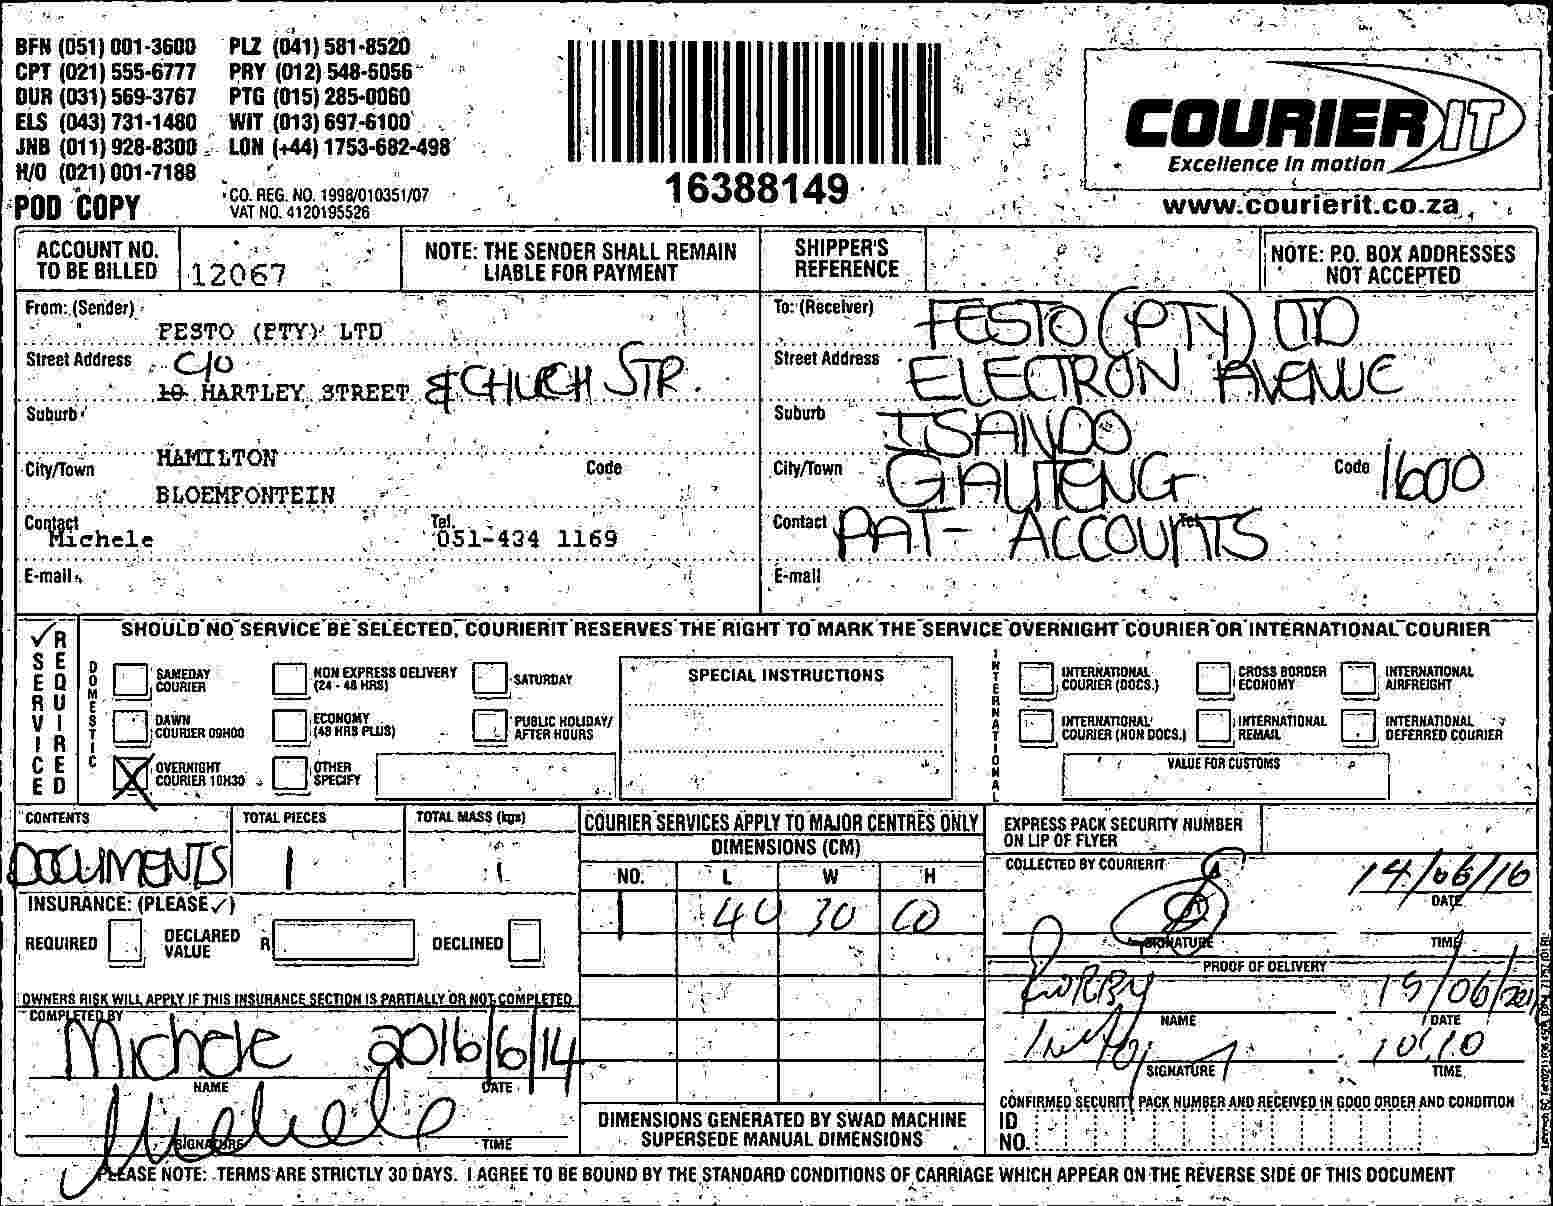 BFN (051) 001-3600 PLZ (041) 581-8520
CPT (021) 555-6777 PRY (012) 548-5056
DUR (031) 569-3767 PTG (015) 285-0060
ELS (043) 731-1480 WIT (013) 697-6100
JNB (011) 928-8300 LON (+44) 1753-682-498
H/O (021) 001-7188
POD COPY
CO. REG. NO. 1998/010351/07
VAT NO. 4120195526
16388149
COURIER IT
Excellence in motion
www.courierit.co.za
ACCOUNT NO. TO BE BILLED 12067
NOTE: THE SENDER SHALL REMAIN LIABLE FOR PAYMENT
SHIPPER'S REFERENCE
NOTE: P.O. BOX ADDRESSES NOT ACCEPTED
From: (Sender)
FESTO (PTY) LTD
Street Address C/O
10 HARTLEY STREET & CHURCH STR.
Suburb
HAMILTON
City/Town Code
BLOEMFONTEIN
Contact Michele Tel. 051-434 1169
E-mail
To: (Receiver) FESTO (PTY) LTD
Street Address ELECTRON AVENUE
Suburb ISANDO
City/Town GAUTENG Code 1600
Contact PAT - ACCOUNTS Tel.
E-mail
✓ SERVICE REQUIRED
SHOULD NO SERVICE BE SELECTED, COURIERIT RESERVES THE RIGHT TO MARK THE SERVICE OVERNIGHT COURIER OR INTERNATIONAL COURIER
DOMESTIC
SAMEDAY COURIER
NON EXPRESS DELIVERY (24 - 48 HRS)
SATURDAY
DAWN COURIER 09H00
ECONOMY (48 HRS PLUS)
PUBLIC HOLIDAY/ AFTER HOURS
X OVERNIGHT COURIER 10H30
OTHER SPECIFY
SPECIAL INSTRUCTIONS
INTERNATIONAL
INTERNATIONAL COURIER (DOCS.)
CROSS BORDER ECONOMY
INTERNATIONAL AIRFREIGHT
INTERNATIONAL COURIER (NON DOCS.)
INTERNATIONAL REMAIL
INTERNATIONAL DEFERRED COURIER
VALUE FOR CUSTOMS
CONTENTS DOCUMENTS
TOTAL PIECES 1
TOTAL MASS (kgs) 1
INSURANCE: (PLEASE ✓)
REQUIRED DECLARED VALUE R DECLINED
OWNERS RISK WILL APPLY IF THIS INSURANCE SECTION IS PARTIALLY OR NOT COMPLETED
COMPLETED BY
Michele 2016/6/14
NAME DATE
Michele
SIGNATURE TIME
COURIER SERVICES APPLY TO MAJOR CENTRES ONLY
DIMENSIONS (CM)
NO. L W H
1 40 30
DIMENSIONS GENERATED BY SWAD MACHINE SUPERSEDE MANUAL DIMENSIONS
EXPRESS PACK SECURITY NUMBER ON LIP OF FLYER
COLLECTED BY COURIERIT
14/06/16
DATE
SIGNATURE TIME
PROOF OF DELIVERY
15/06/201
NAME DATE
10:10
SIGNATURE TIME
CONFIRMED SECURITY PACK NUMBER AND RECEIVED IN GOOD ORDER AND CONDITION
ID NO.
PLEASE NOTE: TERMS ARE STRICTLY 30 DAYS. I AGREE TO BE BOUND BY THE STANDARD CONDITIONS OF CARRIAGE WHICH APPEAR ON THE REVERSE SIDE OF THIS DOCUMENT